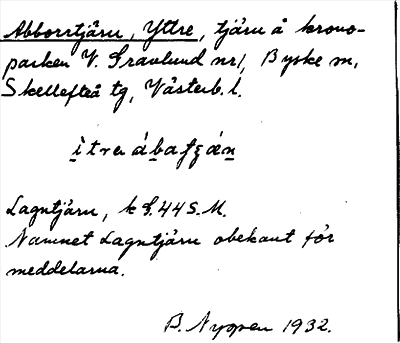 Abborrtjärn, Yttre, tjärn å krono-
parken V. Gravlund nr 1, Byske sn,
Skellefteå tg, Västerb. l.
Lagntjärn, k S. 44 S.M.
Namnet Lagntjärn obekant för
meddelarna.
B. Nyman 1932.